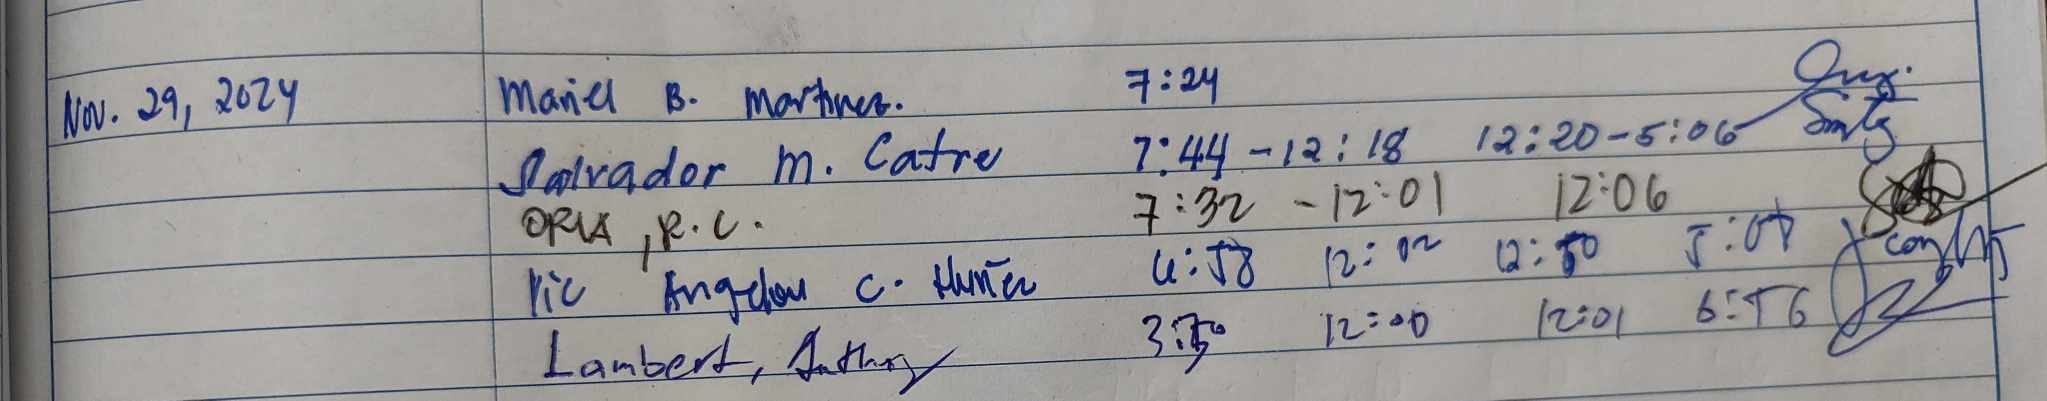 Nov. 29, 2024 Mariel B. Martinez. 7:24
Salvador M. Catre 7:44 - 12:18 12:20-5:06
ORIA, R.C. 7:32 - 12:01 12:06
Vic Angelou C. 12:02 12:50
Lambert, Anthony 12:00 12:01 6:56